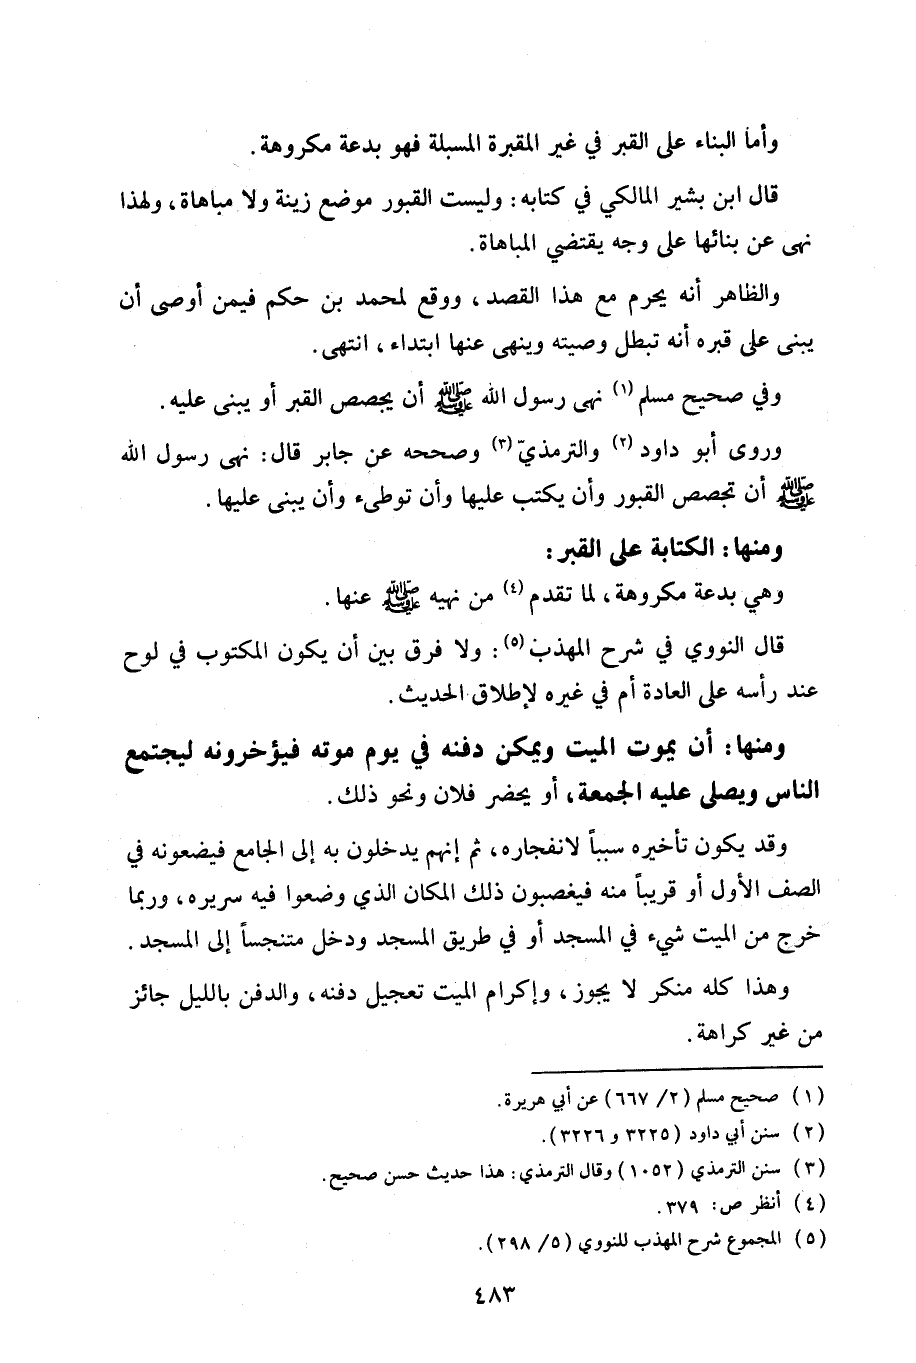 وأما البناء على القبر في غير المقبرة المسبلة فهو بدعة مكروهة.
قال ابن بشير المالكي في كتابه: وليست القبور موضع زينة ولا مباهاة، ولهذا
نهى عن بنائها على وجه يقتضي المباهاة.
والظاهر أنه يحرم مع هذا القصد، ووقع لمحمد بن حكم فيمن أوصى أن
يبنى على قبره أنه تبطل وصيته وينهى عنها ابتداء، انتهى.
وفي صحيح مسلم (١) نهى رسول الله ﷺ أن يجصص القبر أو يبنى عليه.
وروى أبو داود (٢) والترمذيّ (٣) وصححه عن جابر قال: نهى رسول الله
ﷺ أن تجصص القبور وأن يكتب عليها وأن توطىء وأن يبنى عليها.
ومنها: الكتابة على القبر:
وهي بدعة مكروهة، لما تقدم (٤) من نهيه ﷺ عنها.
قال النووي في شرح المهذب (٥): ولا فرق بين أن يكون المكتوب في لوح
عند رأسه على العادة أم في غيره لإطلاق الحديث.
ومنها: أن يموت الميت ويمكن دفنه في يوم موته فيؤخرونه ليجتمع
الناس ويصلى عليه الجمعة، أو يحضر فلان ونحو ذلك.
وقد يكون تأخيره سبباً لانفجاره، ثم إنهم يدخلون به إلى الجامع فيضعونه في
الصف الأول أو قريباً منه فيغصبون ذلك المكان الذي وضعوا فيه سريره، وربما
خرج من الميت شيء في المسجد أو في طريق المسجد ودخل متنجساً إلى المسجد.
وهذا كله منكر لا يجوز، وإكرام الميت تعجيل دفنه، والدفن بالليل جائز
من غير كراهة.
(١) صحيح مسلم (٢/ ٦٦٧) عن أبي هريرة.
(٢) سنن أبي داود (٣٢٢٥ و ٣٢٢٦).
(٣) سنن الترمذي (١٠٥٢) وقال الترمذي: هذا حديث حسن صحيح.
(٤) أنظر ص: ٣٧٩.
(٥) المجموع شرح المهذب للنووي (٥/ ٢٩٨).
٤٨٣